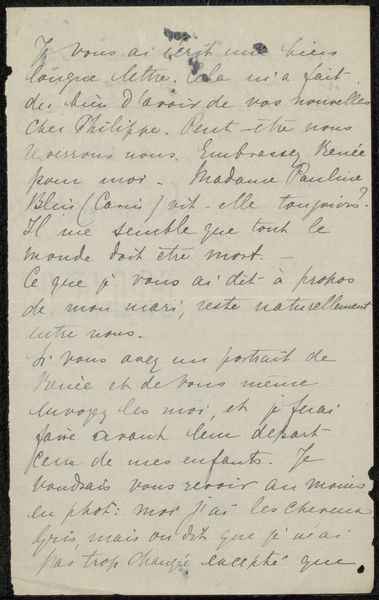 Je vous ai écrit une bien
longue lettre. Cela m'a fait
du bien d'avoir de vos nouvelles
cher Philippe. Peut-être nous
reverrons nous. Embrassez Renée
pour moi - Madame Pauline
(Camis) vit-elle toujours?
Il me semble que tout le
monde doit être mort. -
Ce que je vous ai dit à propos
de mon mari, reste naturellement
entre nous.
Si vous avez un portrait de
Renée et de vous même
envoyez les moi, et je ferai
faire avant leur départ
ceux de mes enfants. Je
voudrais vous revoir au moins
en phot: moi j'ai les cheveux
gris, mais on dit que je n'ai
pas trop changée excepté que